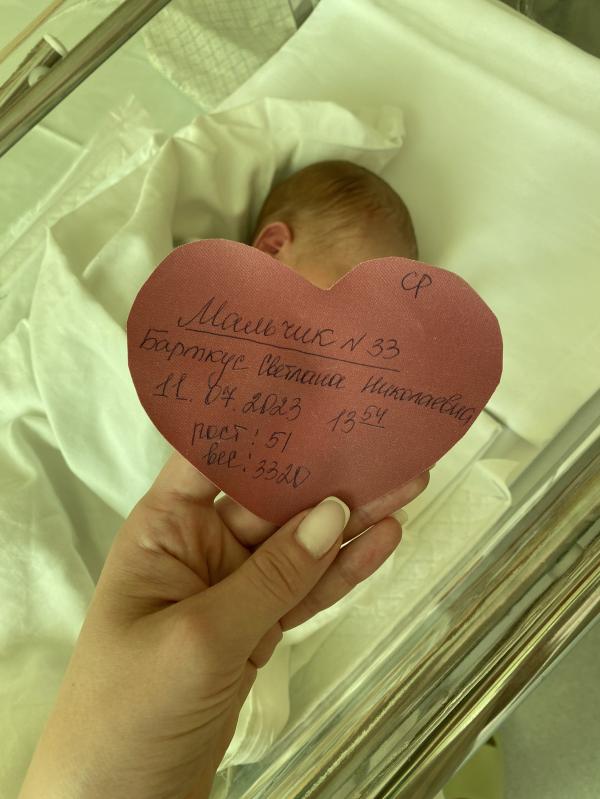 СР
Мальчик N 33
Барткус Светлана Николаевна
11.07.2023 13 54
рост: 51
вес: 3320